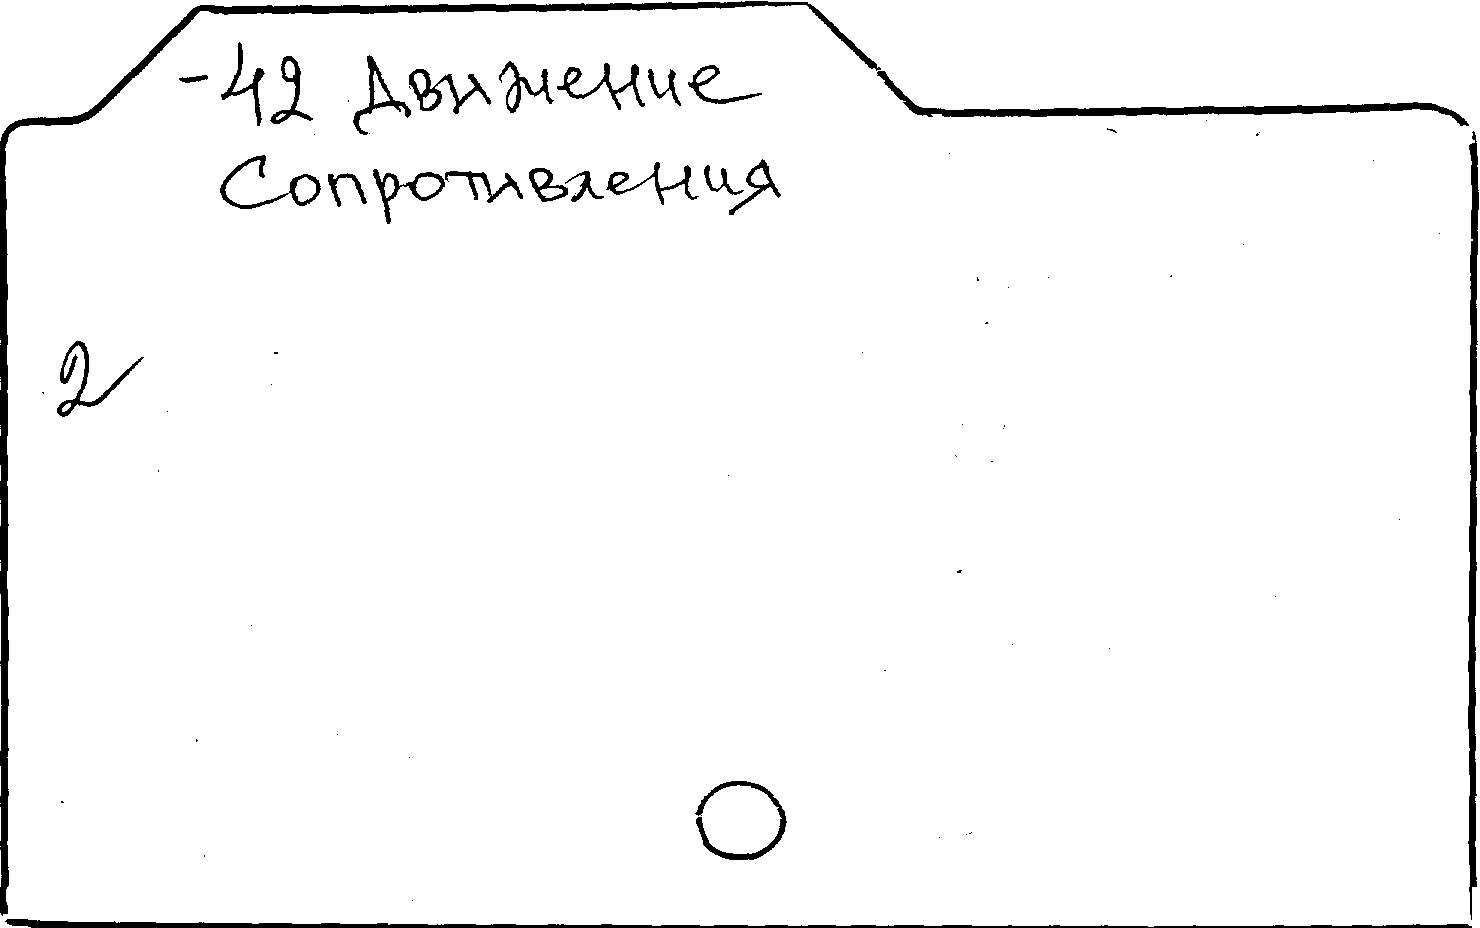 -42 Движение
Сопротивления
2